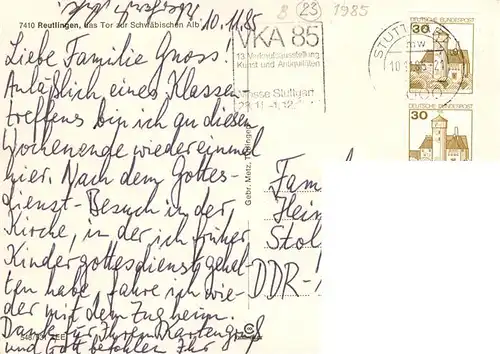 B 23 1985
7410 Reutlingen, das Tor zur Schwäbischen Alb
10.11.85
Liebe Familie Gnoss!
Anläßlich eines Klassen
treffens bin ich an diesem
Wochenende wieder einmal
hier. Nach dem Gottes-
dienst-Besuch in der
Kirche, in der ich früher
Kindergottesdienst gehal-
ten habe fahre ich wie-
der mit dem Zug heim.
Danke für Ihren Kartengruß
und Gott befohlen Ihr
VKA 85
13. Verkaufsausstellung
Kunst und Antiquitäten
Messe Stuttgart
STUTTGART
mw
10.11.85-21
DEUTSCHE BUNDESPOST
30
DEUTSCHE BUNDESPOST
30
Gebr. Metz, Tübingen
Fam
Hein
Stol
DDR-